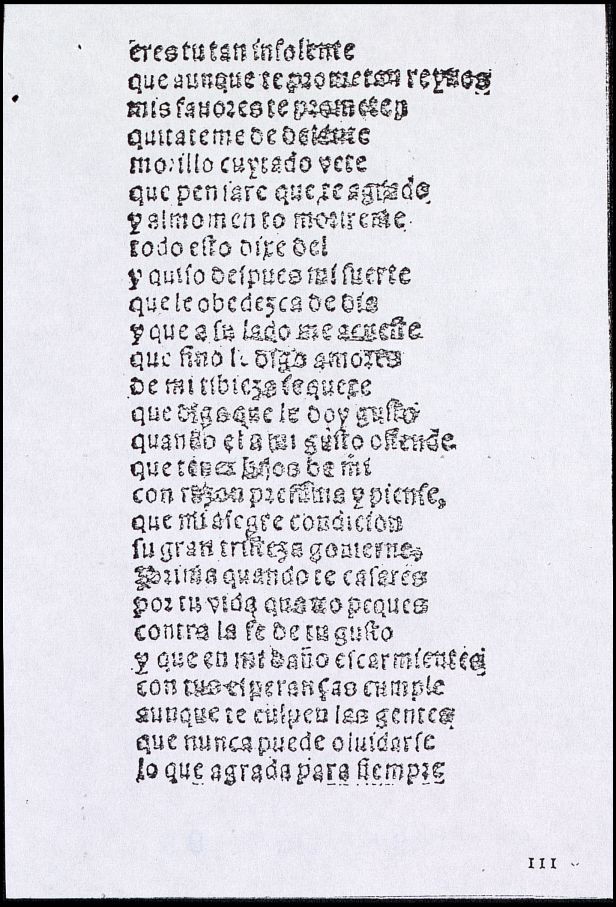 eres tu tan insolente
que aunque te prometan reynos
mis fauores te prometen
quitateme de delante
morillo cuytado vete
que pensare que te agrado
y al momento mourreme
todo esto dixe del
y quiso despues mi suerte
que le obedezca de dia
y que a su lado me acueste
que sino le digo amores
de mi tibieza se quexe
que diga que le doy gusto
quando el a mi gusto offende
que tener hijos de mi
con razon presuma y piense,
que mi alegre condicion
su gran tristeza gouierne,
Prima quando te casares
por tu vida que no peques
contra la fe de tu gusto
y que en mi daño escarmientes
con tus esperanças cumple
aunque te culpen las gentes
que nunca puede oluidarse
lo que agrada para siempre
III